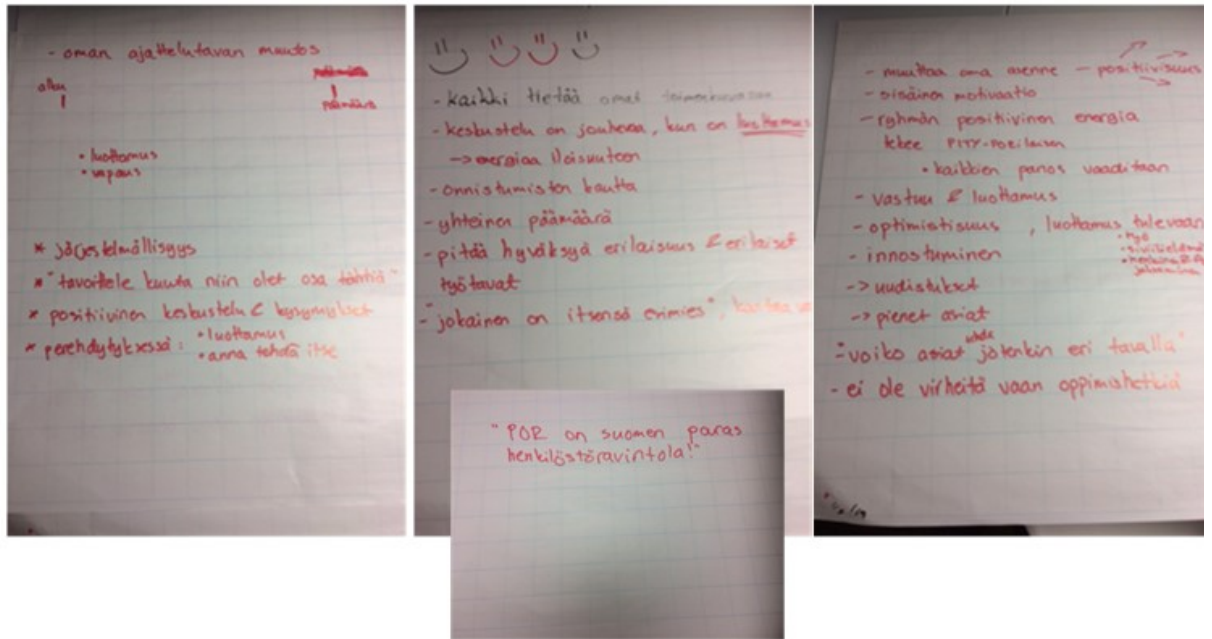 - oman ajattelutavan muutos
alku
päämäärä
• luottamus
• vapaus
* järjestelmällisyys
* "tavoittele kuuta niin olet osa tähtiä"
* positiivinen keskustelu & kysymykset
* perehdytyksessä: • luottamus
• anna tehdä itse
- kaikki tietää omat toimenkuvansa
- keskustelu on jouhevaa, kun on luottamus
-> energiaa iloisuuteen
- onnistumisten kautta
- yhteinen päämäärä
- pitää hyväksyä erilaisuus & erilaiset
työtavat
- "jokainen on itsensä esimies",
"POR on suomen paras
henkilöstöravintola!"
- muuttaa oma asenne - positiivisuus
- sisäinen motivaatio
- ryhmän positiivinen energia
tekee
• kaikkien panos vaaditaan
- vastuu & luottamus
- optimistisuus, luottamus tulevaan
• työ
- innostuminen
-> uudistukset
-> pienet asiat
- "voiko asiat tehdä jotenkin eri tavalla"
- ei ole virheitä vaan oppimishetkiä